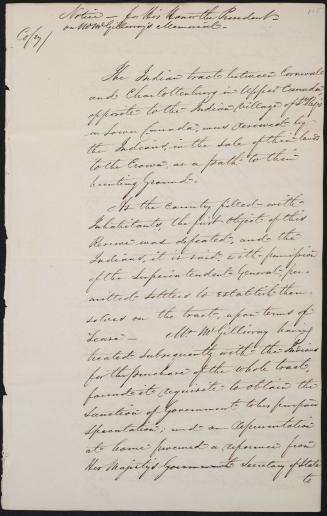 Notice – for His Honor the President –
on Mr McGillivray's Memorial. –
Copy/
The Indian tract between Cornwall
and Charlottenburg in Upper Canada
opposite to the Indian Village of St Regis
in Lower Canada, was reserved by
the Indians, in the sale of their lands
to the Crown, as a path to their
hunting Ground. –
As the country filled with
Inhabitants, the first object of this
Reserve was defeated, and the
Indians, it is said, with permission
of the Superintendent General per-
mitted settlers to establish them-
selves on the tract, upon terms of
Lease – Mr McGillivray having
treated subsequently with the Indians
for the purchase of the whole tract,
found it requisite to obtain the
sanction of Government to his purpose
speculation; and on Representation
at home procured a reference from
His Majesty's Government Secretary of State
to